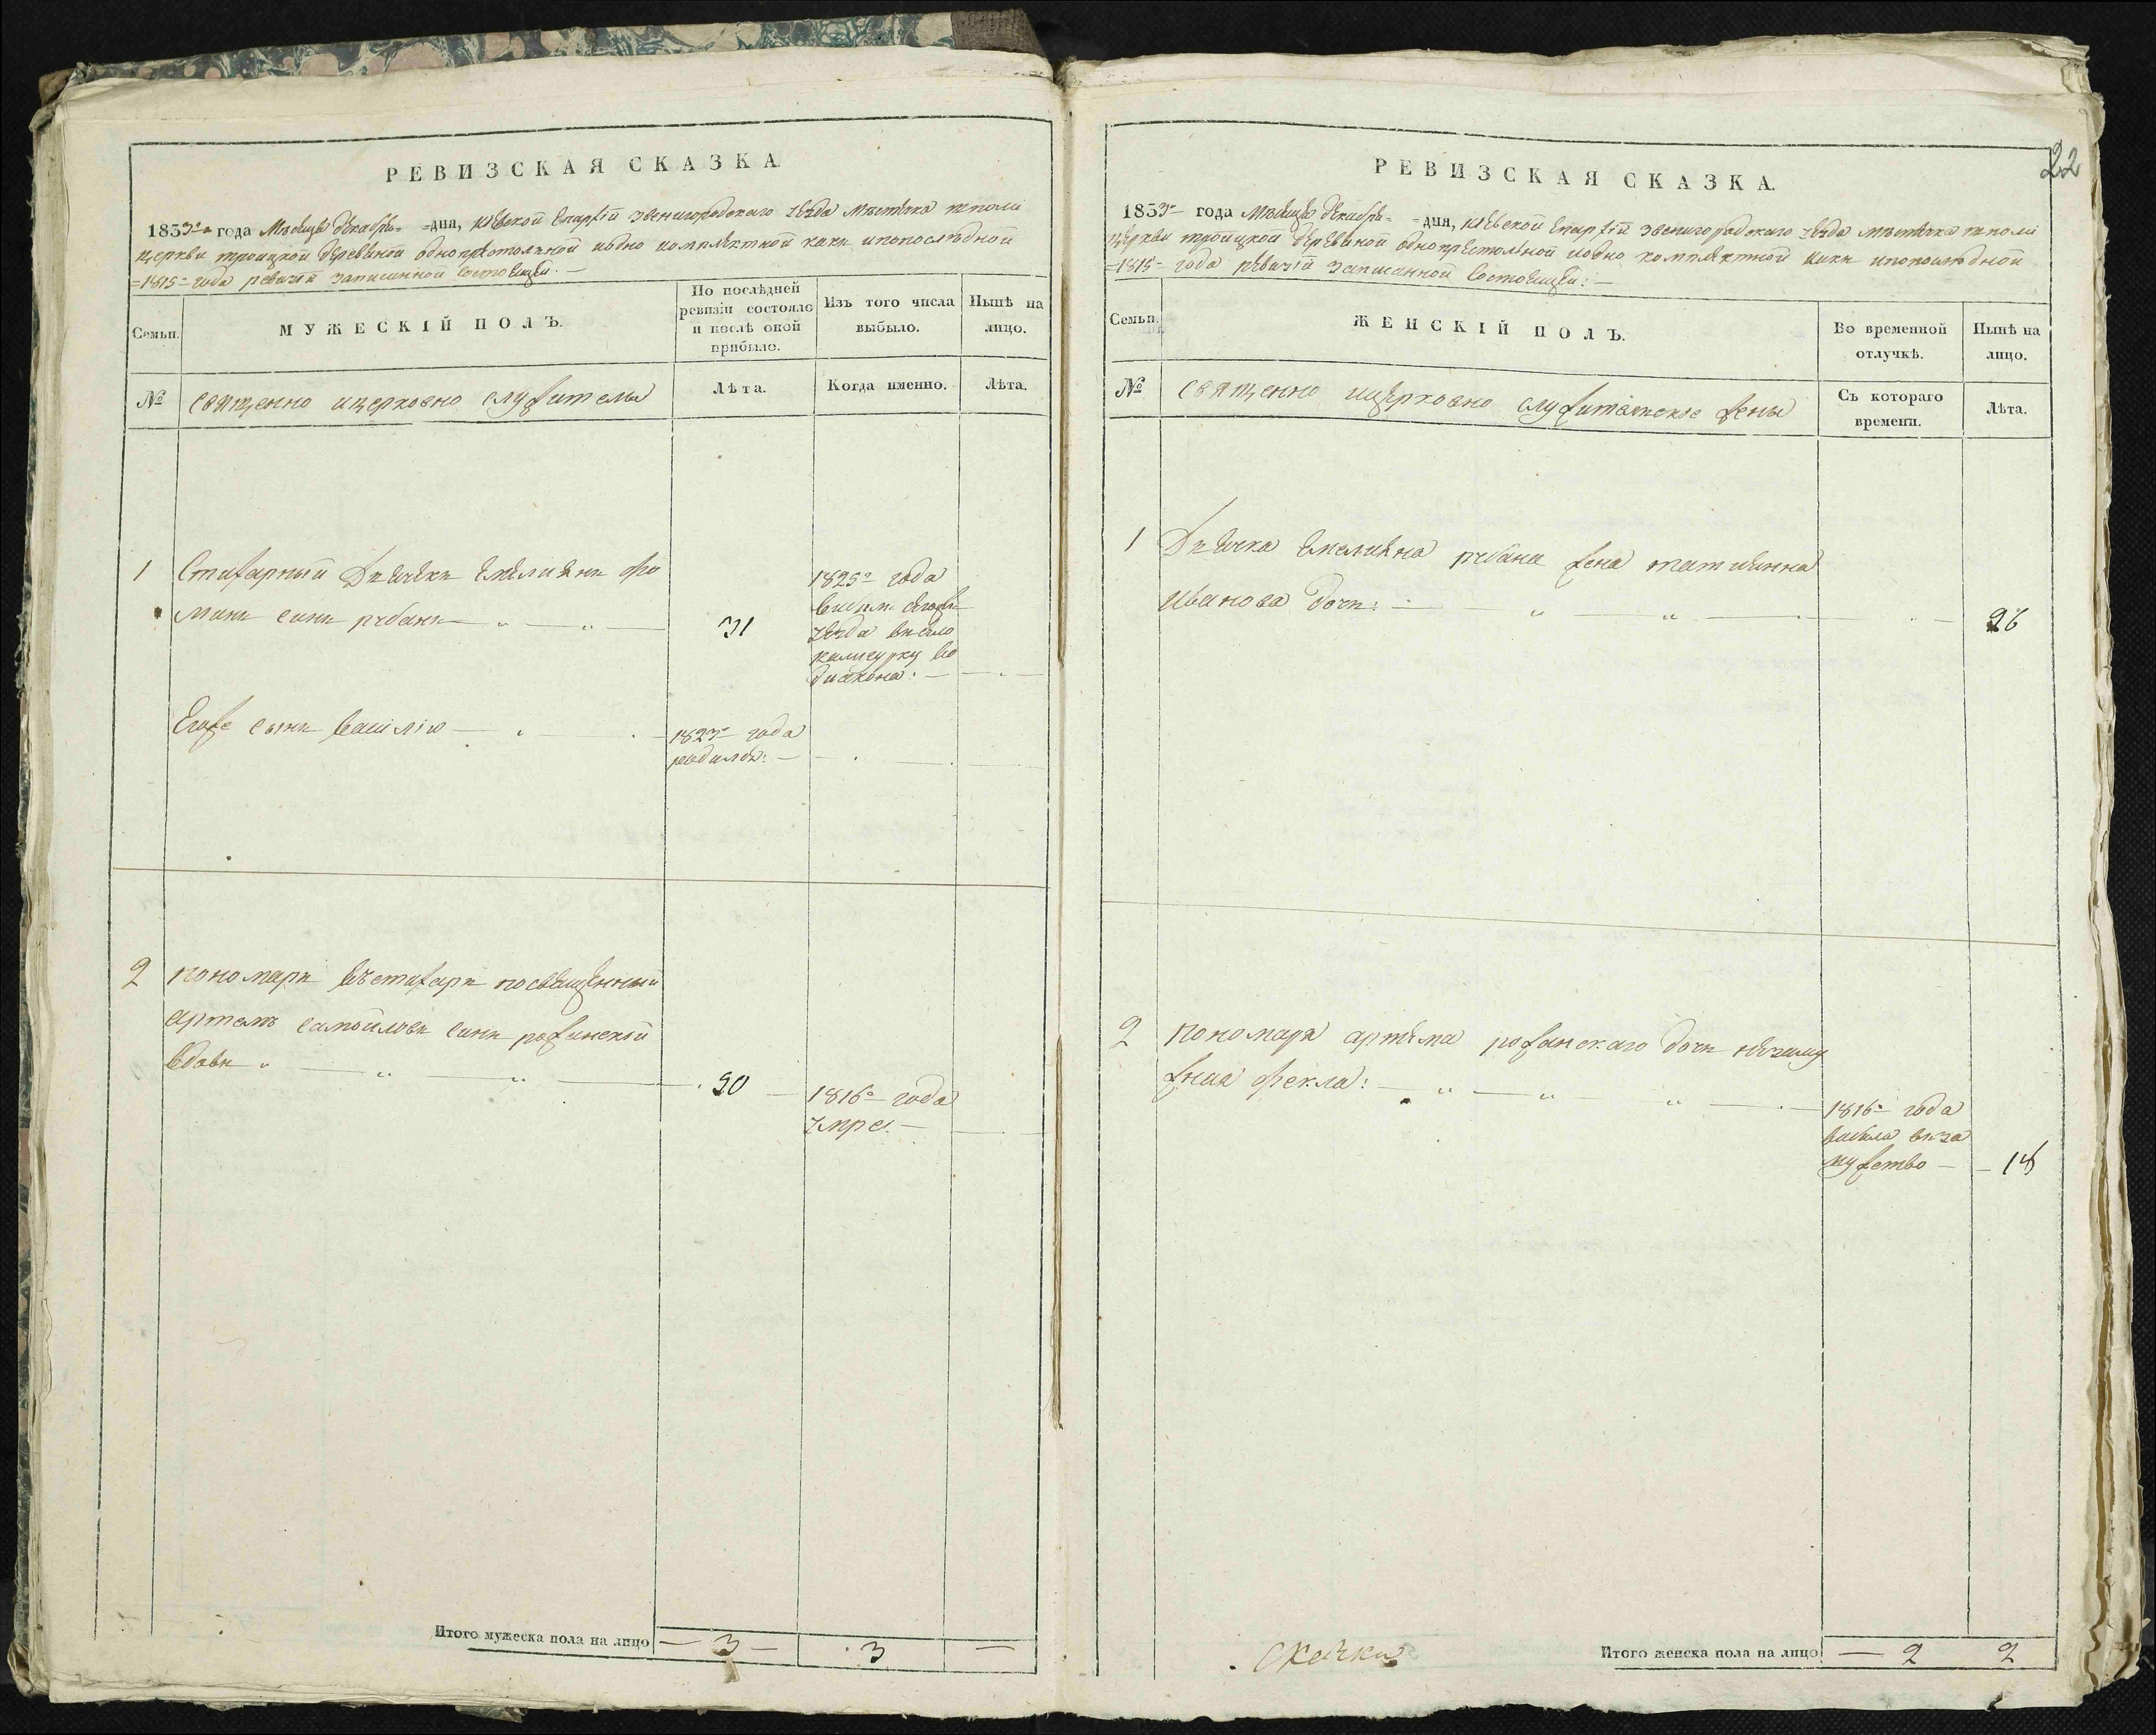 РЕВИЗСКАЯ СКАЗКА.
1833го года Мѣсяца декабря = =дня, Киевской Епархiй звенигородскаго уезда мѣстечка тполи
церкви троицкой деревяной однопрестольной иодно комплектной какъ ипопослѣдной
=1815= года ревизiй записанной состоящей:—
Семьи.
МУЖЕСКІЙ ПОЛЪ.
По послѣдней ревизіи состояло и послѣ оной прибыло.
Изъ того числа выбыло.
Нынѣ на лицо.
№
священно ицерковно служители
Лѣта.
Когда именно.
Лѣта.
1
Стихарный Дьячекъ Емелианъ Фо
минъ синъ рубанъ — „ — „ —
31
1825го года
уезда
дiакона. —
Егоже сынъ Василiю —
1823го года
родился: —
2
пономарь въстихарь посвященный
артемъ самойловъ синъ рожанскiй
вдовъ „ — „ — „ —
50
1816го года
умре. —
Итого мужеска пола на лицо
— 3 —
3
—
22
РЕВИЗСКАЯ СКАЗКА.
1833го года Мѣсяца декабря = =дня, Киевской Епархiй звенигородскаго уезда мѣстечка тполи
церкви троицкой деревяной однопрестольной иодно комплектной какъ ипопослѣдной
=1815= года ревизiй записанной состоящей: —
Семьи.
ЖЕНСКІЙ ПОЛЪ.
Во временной отлучкѣ.
Нынѣ на лицо.
№
священно ицерковно служителскiе жены
Съ котораго времени.
Лѣта.
1
Дьячка Емелияна рубана жена татиянна
Иванова дочь: — „ — „ —
26
2
пономаря артема рожанскаго дочь незаму
жная Фекла: — „ — „ — „ —
1816го года
выбыла въза
мужство —
— 18
Итого женска пола на лицо
— 2
2